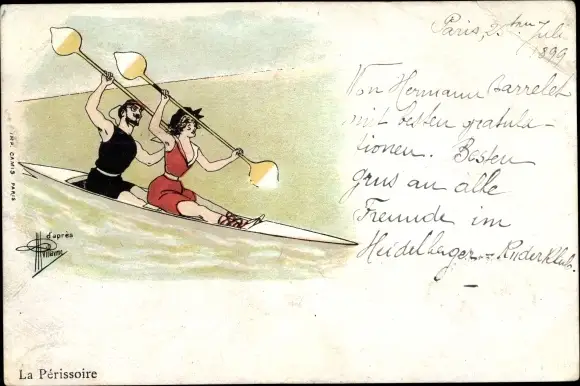 Paris, 2. Juli
1899
Von Hermann Barrelet
mit besten gratula-
tionen. Besten
grus an alle
Freunde im
Heidelberger-Ruderklub.
IMP. CAMIS PARIS
d'après
Guillaume
La Périssoire